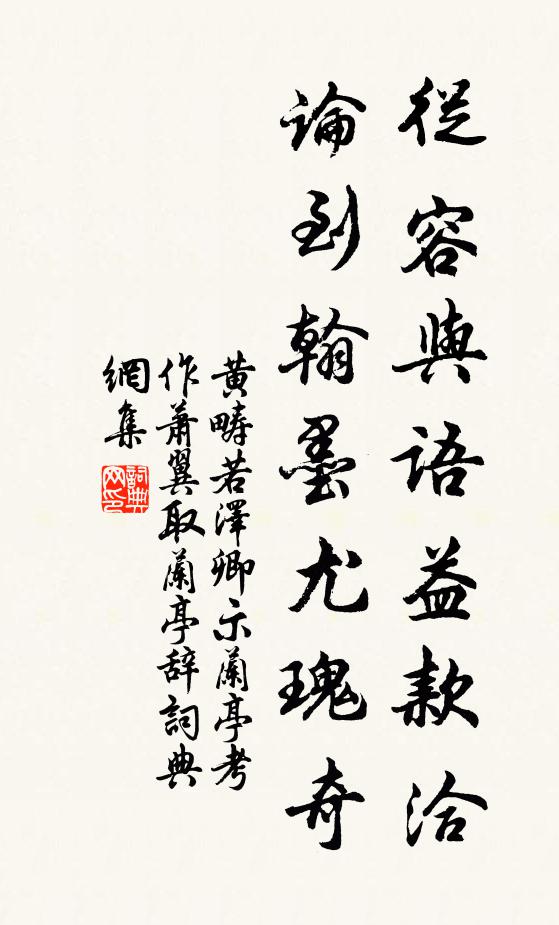 從容與語益款洽
論到翰墨尤瑰奇
黃疇若澤卿示蘭亭考
作蕭翼取蘭亭辞詞典
網集
詞典
网印